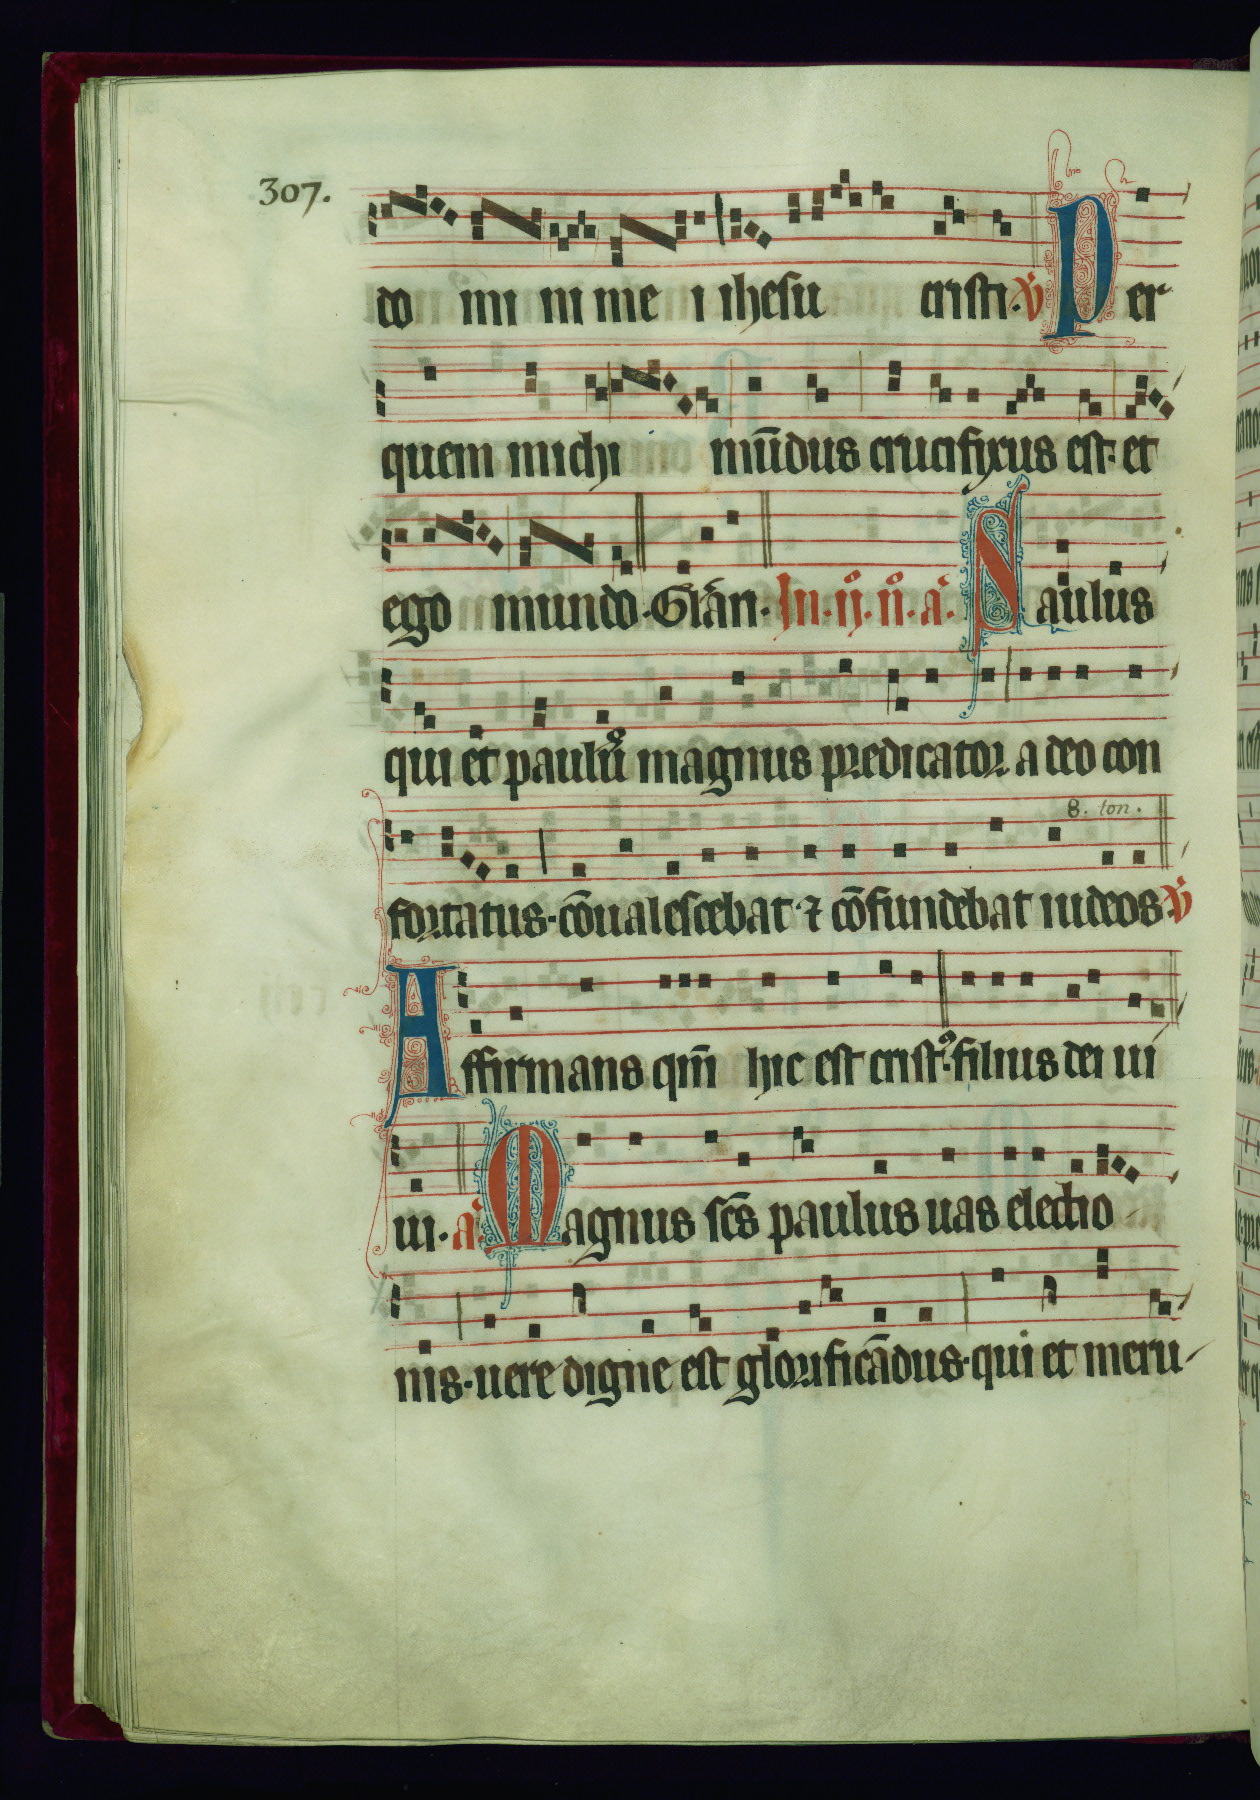 307.
do mi ni me i ihesu cristi. ℣ Per
quem michi mūdus crucifixus est. et
ego mundo. Glā̄ri. In. ij. n̊. a̾. Paulus
qui et paulū magnus predicator a deo con
8. ton.
fortatus. cōualescebat. ⁊ cōfundebat iudeos. ℣
Affirmans qm̄ hic est crist᷒. filius dei ui
ui. a̾. Magnus scs̄ paulus uas electio
nis. uere digne est glorificādus. qui et meru